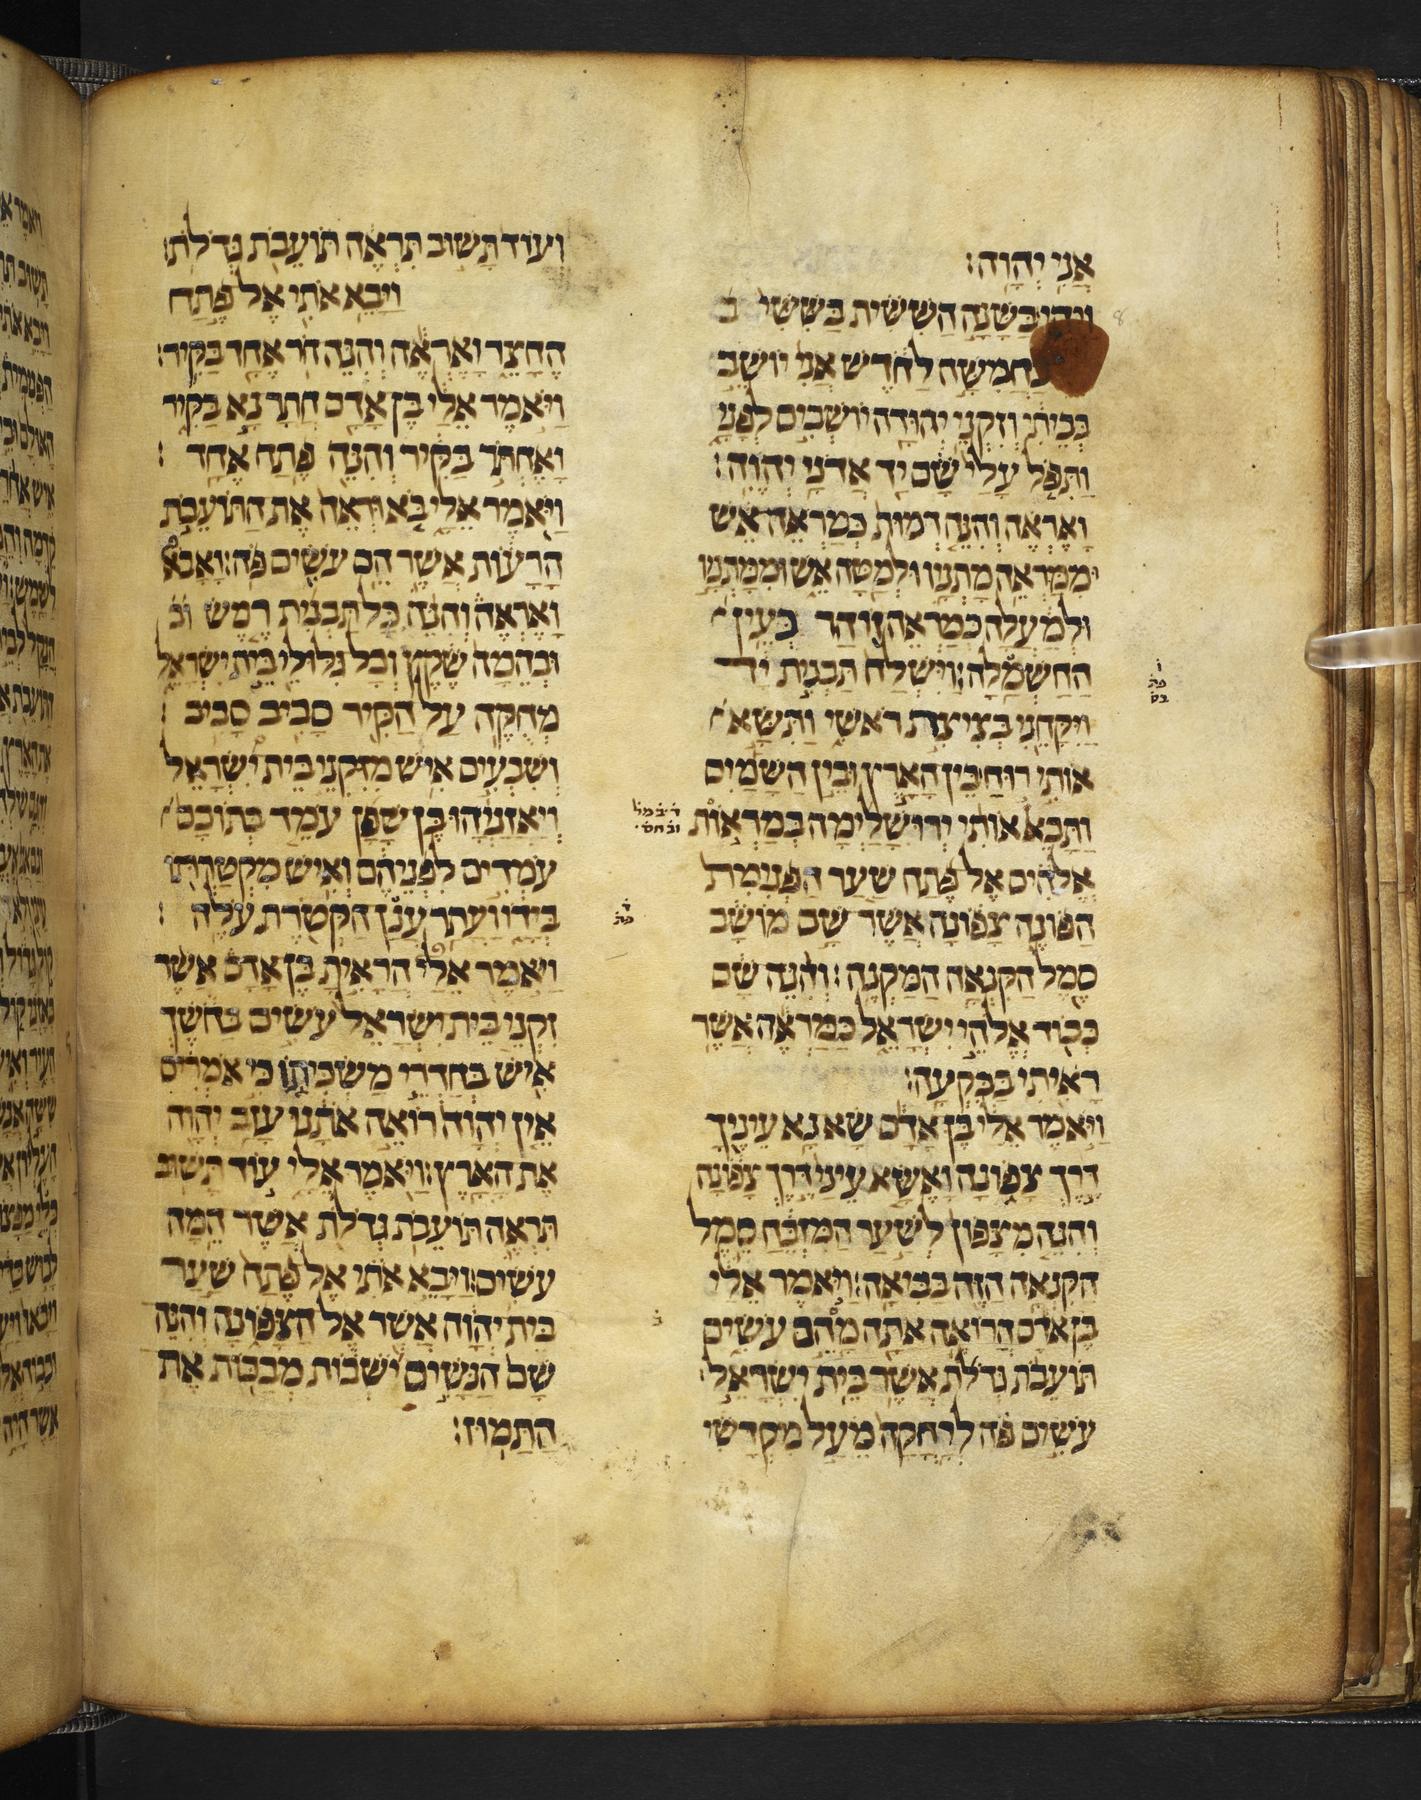 אֲנִי יְהוָה׃
ויהי בַּשָּׁנָה הַשִּׁשִּׁית בַּשִּׁשִּׁי ב
בַחֲמִשָּׁה לַחֹדֶשׁ אֲנִי יוֹשֵׁב
בְּבֵיתִי וְזִקְנֵי יְהוּדָה יוֹשְׁבִים לְפָנָי
וַתִּפֹּל עָלַי שָׁם יַד אֲדֹנָי יְהוִה׃
וָאֶרְאֶה וְהִנֵּה דְמוּת כְּמַרְאֵה אֵשׁ
מִמַּרְאֵה מָתְנָיו וּלְמַטָּה אֵשׁ וּמִמָּתְנָיו
וּלְמַעְלָה כְּמַרְאֵה זוֹהַר כְּעֵין
הַחַשְׁמַלָה׃ וַיִּשְׁלַח תַּבְנִית יד
וַיִּקָּחֵנִי בְּצִיצִת רֹאשִׁי וַתִּשָּׂא
אוֹתִי רוּחַ בֵּין הָאָרֶץ וּבֵין הַשָּׁמַיִם
וַתָּבֵא אוֹתִי יְרוּשָׁלַיְמָה בְּמַרְאוֹת
אֱלֹהִים אֶל פֶּתַח שַׁעַר הַפְּנִימִית
הַפּוֹנֶה צָפוֹנָה אֲשֶׁר שָׁם מוֹשַׁב
סֵמֶל הַקִּנְאָה הַמַּקְנֶה׃ וְהִנֵּה שָׁם
כְּבוֹד אֱלֹהֵי יִשְׂרָאֵל כַּמַּרְאֶה אֲשֶׁר
רָאִיתִי בַּבִּקְעָה׃
וַיֹּאמֶר אֵלַי בֶּן אָדָם שָׂא נָא עֵינֶיךָ
דֶּרֶךְ צָפוֹנָה וָאֶשָּׂא עֵינַי דֶּרֶךְ צָפוֹנָה
וְהִנֵּה מִצָּפוֹן לְשַׁעַר הַמִּזְבֵּחַ סֵמֶל
הַקִּנְאָה הַזֶּה בַּבִּאָה׃ וַיֹּאמֶר אֵלַי
בֶּן אָדָם הֲרֹאֶה אַתָּה מָהֵם עֹשִׂים
תּוֹעֵבֹת גְּדֹלֹת אֲשֶׁר בֵּית יִשְׂרָאֵל
עֹשִׂים פֹּה לְרָחֳקָה מֵעַל מִקְדָּשִׁי
וְעוֹד תָּשׁוּב תִּרְאֶה תּוֹעֵבֹת גְּדֹלֹת׃
וַיָּבֵא אֹתִי אֶל פֶּתַח
הֶחָצֵר וָאֶרְאֶה וְהִנֵּה חֹר אֶחָד בַּקִּיר׃
וַיֹּאמֶר אֵלַי בֶּן אָדָם חֲתָר נָא בַקִּיר
וָאֶחְתֹּר בַּקִּיר וְהִנֵּה פֶּתַח אֶחָד ׃
וַיֹּאמֶר אֵלָי בֹּא וּרְאֵה אֶת הַתּוֹעֵבֹת
הָרָעוֹת אֲשֶׁר הֵם עֹשִׂים פֹּה׃ וָאָבוֹא
וָאֶרְאֶה וְהִנֵּה כָל תַּבְנִית רֶמֶשׂ וב
וּבְהֵמָה שֶׁקֶץ וְכָל גִּלּוּלֵי בֵּית יִשְׂרָאֵל
מְחֻקֶּה עַל הַקִּיר סָבִיב סָבִיב
וְשִׁבְעִים אִישׁ מִזִּקְנֵי בֵית יִשְׂרָאֵל
וְיַאֲזַנְיָהוּ בֶן שָׁפָן עֹמֵד בְּתוֹכָם
עֹמְדִים לִפְנֵיהֶם וְאִישׁ מִקְטַרְתּוֹ
בְּיָדוֹ וַעֲתַר עֲנַן הַקְּטֹרֶת עֹלֶה ׃
וַיֹּאמֶר אֵלַי הֲרָאִיתָ בֶן אָדָם אֲשֶׁר
זִקְנֵי בֵית יִשְׂרָאֵל עֹשִׂים בַּחֹשֶׁךְ
אִישׁ בְּחַדְרֵי מַשְׂכִּיתוֹ כִּי אֹמְרִים
אֵין יְהוָה רוֹאֶה אֹתָנוּ עָזַב יְהוָה
אֶת הָאָרֶץ׃ וַיֹּאמֶר אֵלָי עוֹד תָּשׁוּב
תִּרְאֶה תּוֹעֵבֹת גְּדֹלֹת אֲשֶׁר הֵמָּה
עֹשִׂים׃ וַיָּבֵא אֹתִי אֶל פֶּתַח שַׁעַר
בֵּית יְהוָה אֲשֶׁר אֶל הַצָּפוֹנָה וְהִנֵּה
שָׁם הַנָּשִׁים יֹשְׁבוֹת מְבַכּוֹת אֶת
הַתַּמּוּז׃